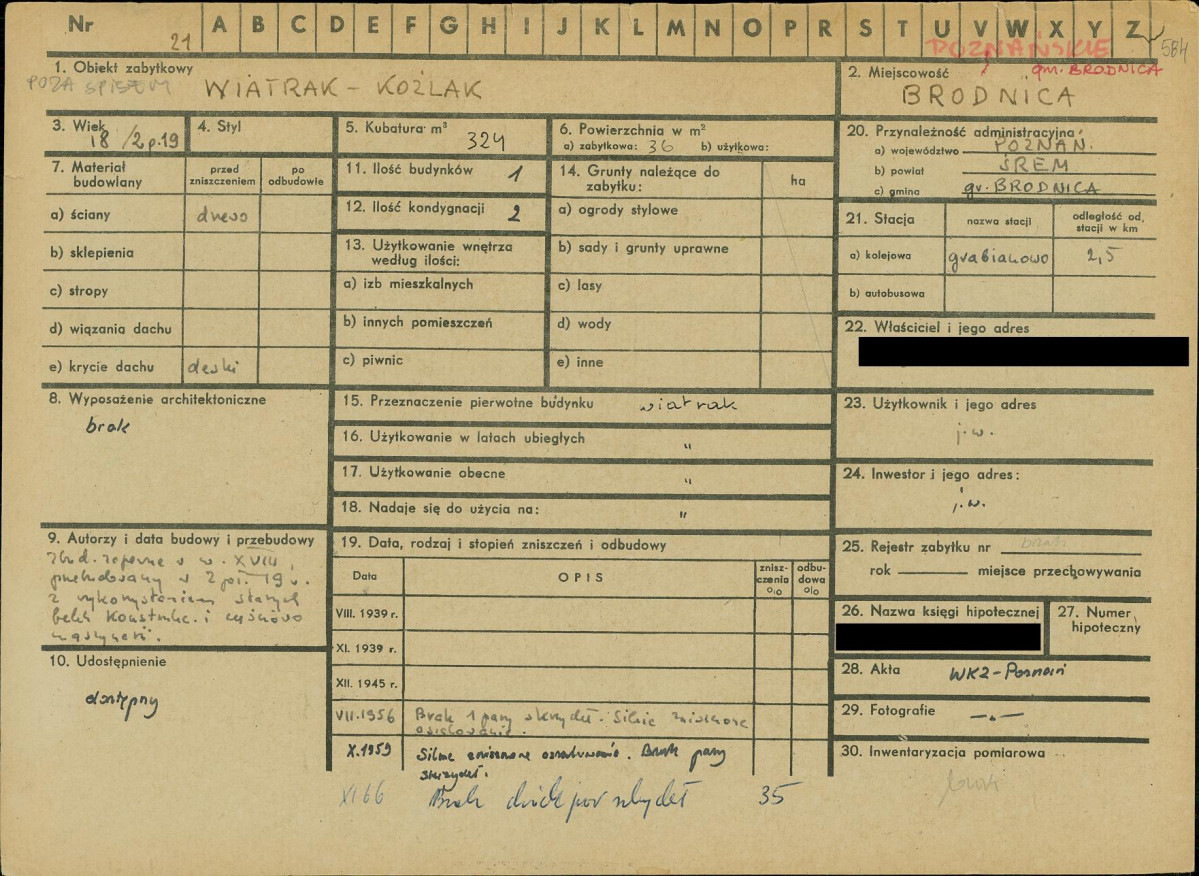 Nr 21 A B C D E F G H I J K L M N O P R S T U V W X Y Z 584
POZNAŃSKIE
gm. BRODNICA
1. Obiekt zabytkowy
POZA SPISEM
WIATRAK - KOŹLAK
2. Miejscowość
BRODNICA
3. Wiek
18/2 p. 19
4. Styl
5. Kubatura m³
324
6. Powierzchnia w m²
a) zabytkowa: 36 b) użytkowa:
20. Przynależność administracyjna
a) województwo POZNAŃ.
b) powiat ŚREM
c) gmina gr. BRODNICA
7. Materiał budowlany
przed zniszczeniem
po odbudowie
a) ściany drewo
b) sklepienia
c) stropy
d) wiązania dachu
e) krycie dachu deski
11. Ilość budynków 1
12. Ilość kondygnacji 2
13. Użytkowanie wnętrza według ilości:
a) izb mieszkalnych
b) innych pomieszczeń
c) piwnic
14. Grunty należące do zabytku:
ha
a) ogrody stylowe
b) sady i grunty uprawne
c) lasy
d) wody
e) inne
21. Stacja
nazwa stacji
odległość od, stacji w km
a) kolejowa grabianowo 2,5
b) autobusowa
22. Właściciel i jego adres
8. Wyposażenie architektoniczne
brak
15. Przeznaczenie pierwotne budynku wiatrak
16. Użytkowanie w latach ubiegłych "
17. Użytkowanie obecne "
18. Nadaje się do użycia na: "
23. Użytkownik i jego adres
j.w.
24. Inwestor i jego adres:
j.w.
9. Autorzy i data budowy i przebudowy
zbud. zapewne w w. XVIII,
przebudowany w 2 poł. 19 w.
z wykorzystaniem starych
belek konstrukc. i częściowo
maszynerii.
10. Udostępnienie
dostępny
19. Data, rodzaj i stopień zniszczeń i odbudowy
Data
OPIS
znisz-czenia %
odbu-dowa %
VIII. 1939 r.
XI. 1939 r.
XII. 1945 r.
VII.1956 Brak 1 pary skrzydeł. Silnie zniszczone
oszalowanie.
X.1959 Silne zniszczone oszalowanie. Brak pary
skrzydeł.
XI 66 Brak dwóch par skrzydeł 35
25. Rejestr zabytku nr brak
rok miejsce przechowywania
26. Nazwa księgi hipotecznej
27. Numer hipoteczny
28. Akta WKZ-Poznań
29. Fotografie —.—
30. Inwentaryzacja pomiarowa
brak